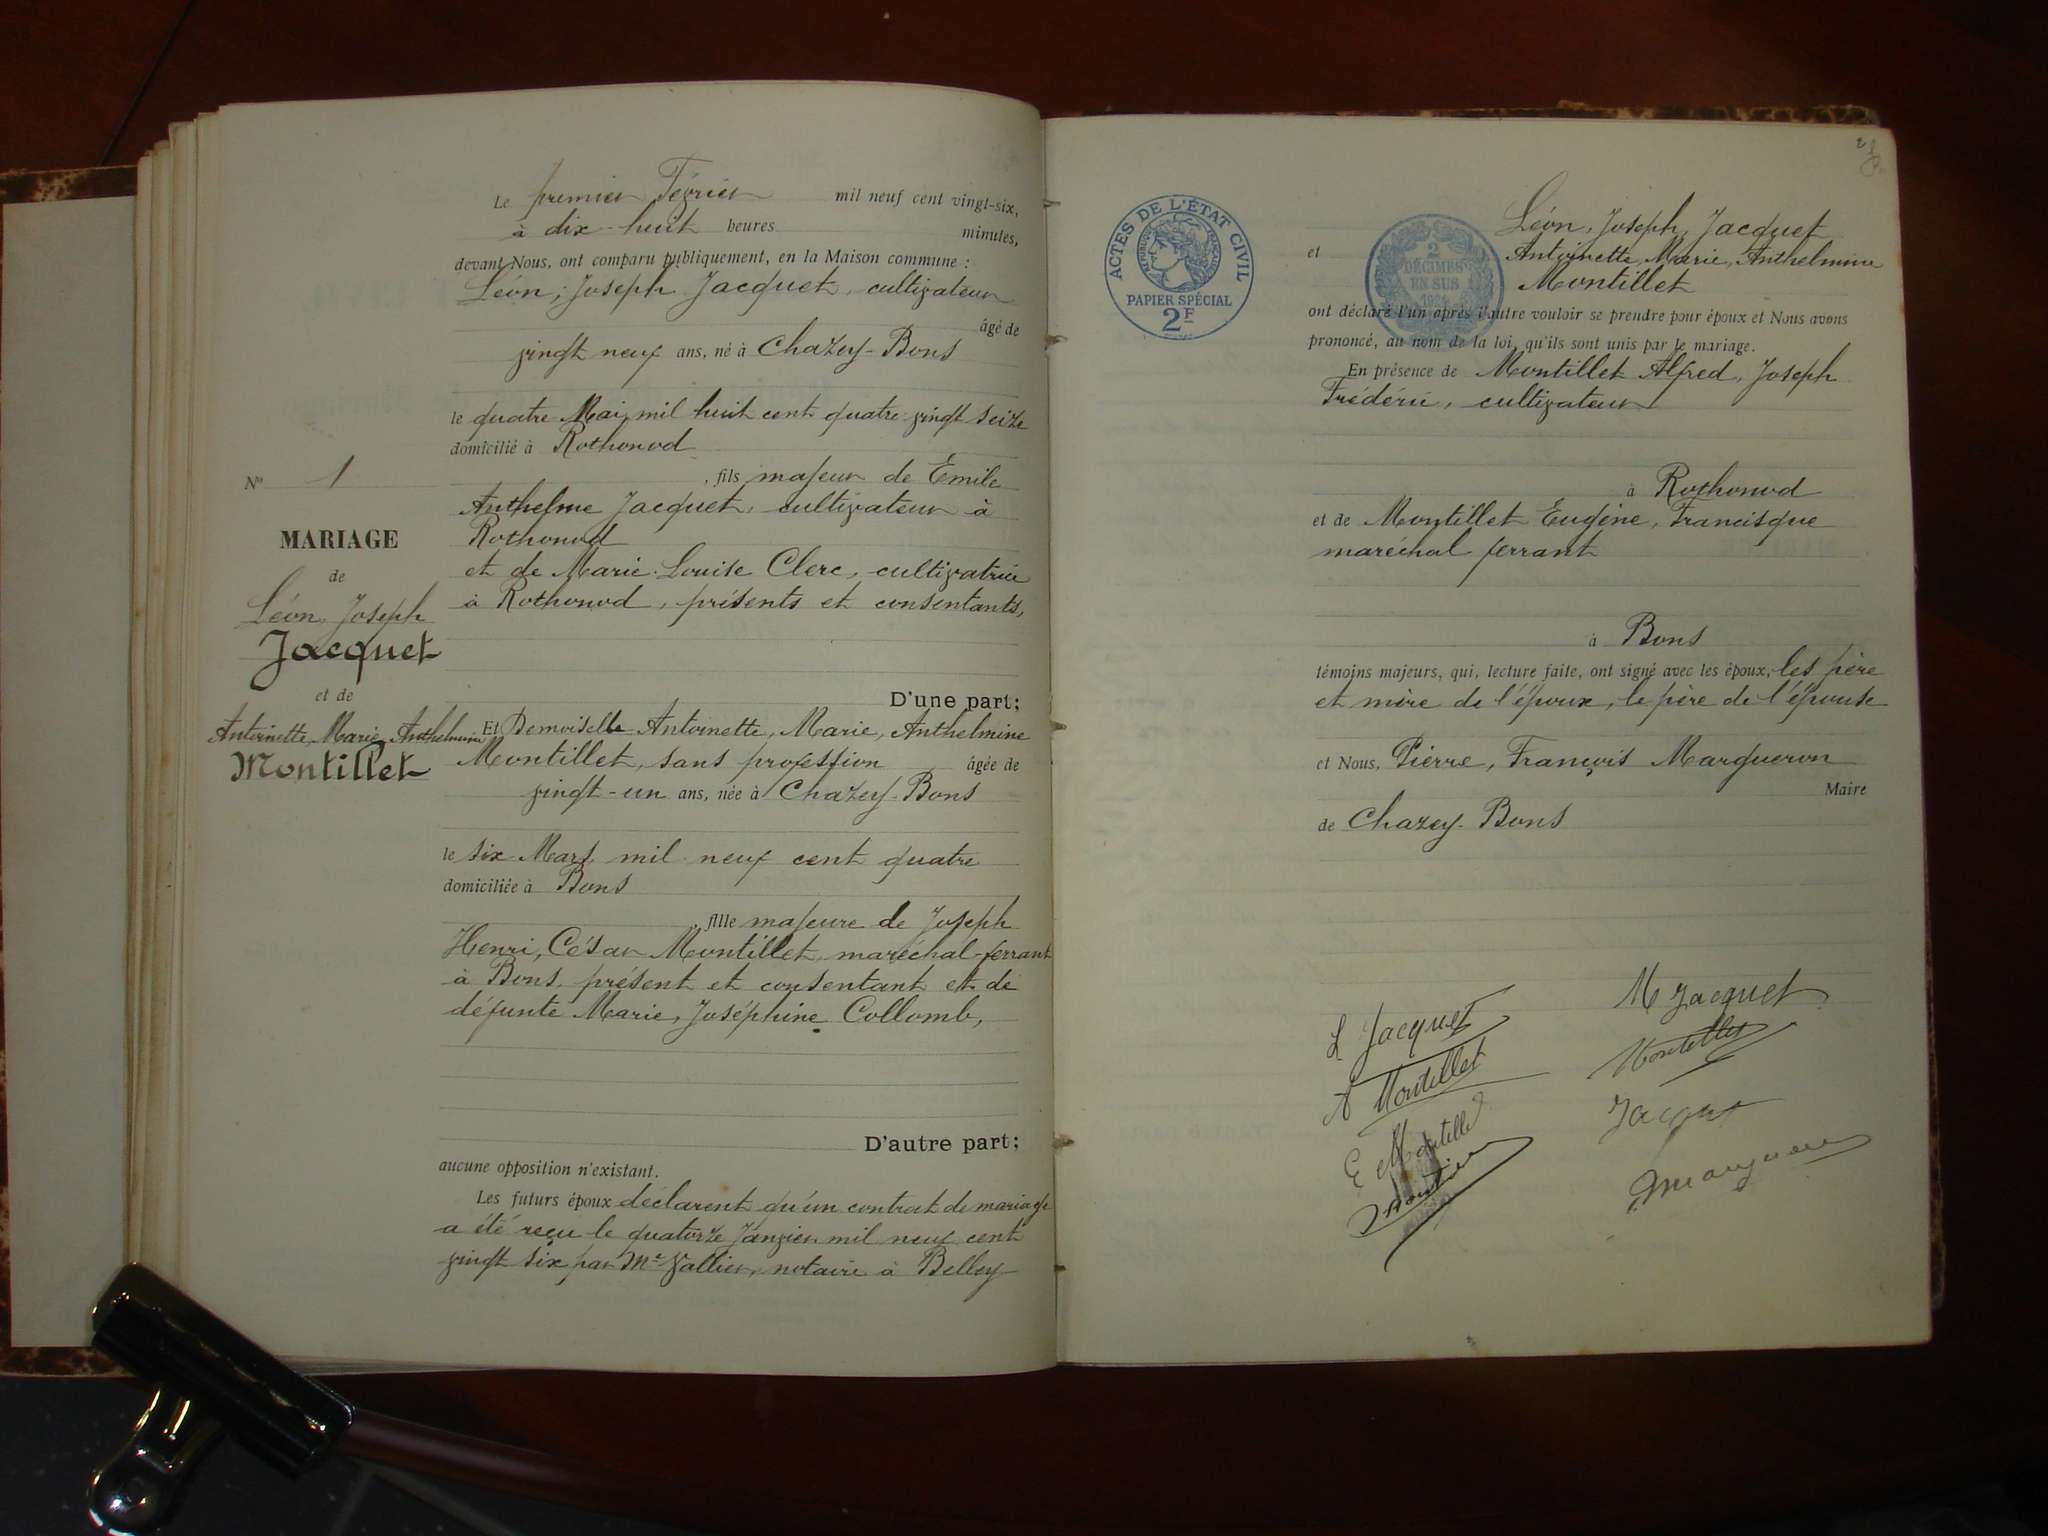 Le premier Février mil neuf cent vingt-six,
à dix-huit heures minutes,
devant Nous, ont comparu publiquement, en la Maison commune :
Léon, Joseph Jacquet, cultivateur
âgé de
vingt neuf ans, né à Chazey-Bons
le quatre Mai mil huit cent quatre vingt seize
domicilié à Rothonod
, fils majeur de Emile
Anthelme Jacquet, cultivateur à
Rothonod
et de Marie Louise Clerc, cultivatrice
à Rothonod, présents et consentants,
D'une part;
No 1
MARIAGE
de
Léon, Joseph
Jacquet
et de
Antoinette, Marie, Anthelmine
Montillet
Et Demoiselle Antoinette, Marie, Anthelmine
Montillet, sans profession âgée de
vingt-un ans, née à Chazey-Bons
le six Mars mil neuf cent quatre
domiciliée à Bons
, fille majeure de Joseph
Henri, César Montillet, maréchal-ferrant
à Bons, présent et consentant et de
défunte Marie, Joséphine Collomb,
D'autre part;
aucune opposition n'existant.
Les futurs époux déclarent qu'un contrat de mariage
a été reçu le quatorze Janvier mil neuf cent
vingt six par Me Vallier, notaire à Belley
ACTES DE L'ÉTAT CIVIL
RÉPUBLIQUE FRANÇAISE
PAPIER SPÉCIAL
2F
2
DÉCIMES
EN SUS
Léon, Joseph, Jacquet
et Antoinette, Marie, Anthelmine
Montillet
ont déclaré l'un après l'autre vouloir se prendre pour époux et Nous avons
prononcé, au nom de la loi, qu'ils sont unis par le mariage.
En présence de Montillet Alfred, Joseph
Frédéric, cultivateur
à Rothonod
et de Montillet Eugène, Francisque
maréchal ferrant
à Bons
témoins majeurs, qui, lecture faite, ont signé avec les époux, les père
et mère de l'époux, le père de l'épouse
et Nous, Pierre, François Margueron
Maire
de Chazey-Bons
L Jacquet
M Jacquet
A Montillet
Montillet
E Montillet
Jacquet